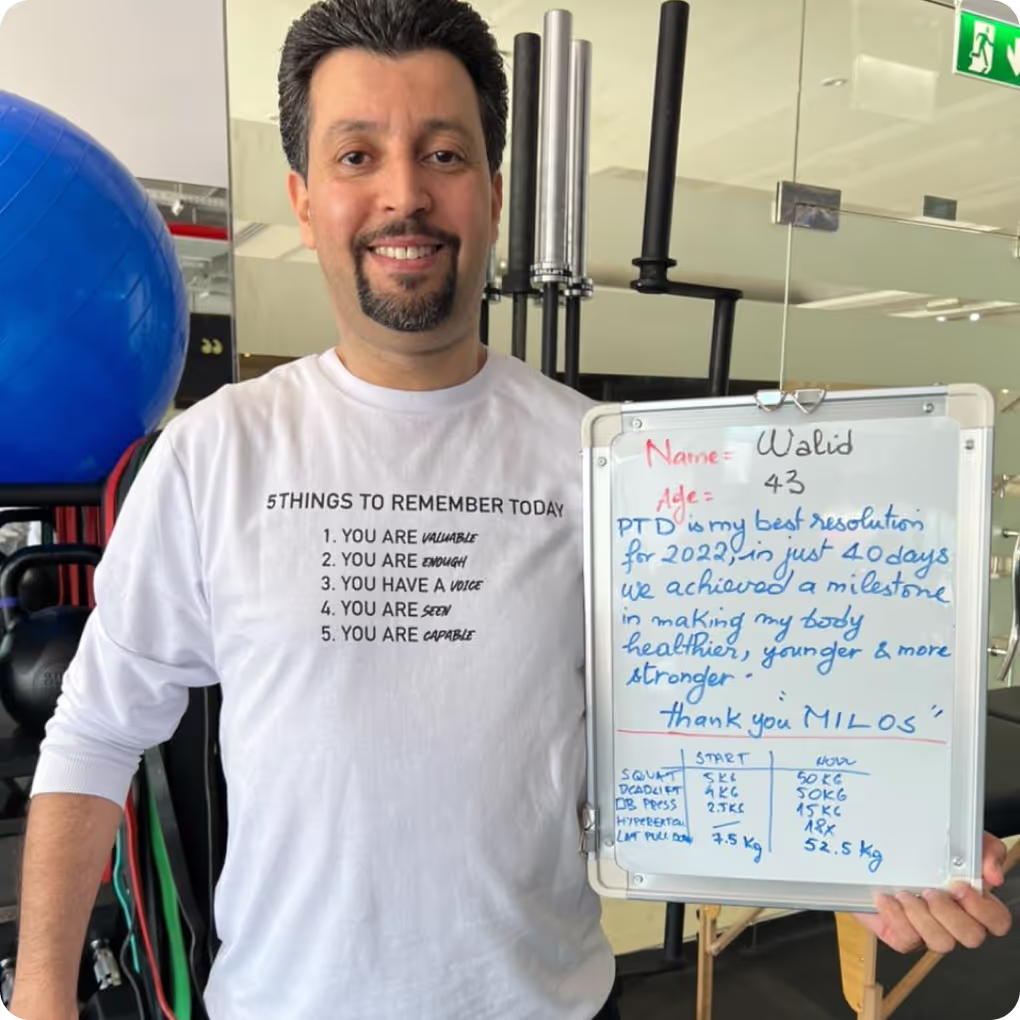 5 THINGS TO REMEMBER TODAY
1. YOU ARE VALUABLE
2. YOU ARE ENOUGH
3. YOU HAVE A VOICE
4. YOU ARE SEEN
5. YOU ARE CAPABLE
Name= Walid
Age= 43
PTD is my best resolution
for 2022, in just 40 days
we achieved a milestone
in making my body
healthier, younger & more
stronger.
thank you "MILOS"
START NOW
SQUAT 5KG 50KG
DEADLIFT 4KG 50KG
DB PRESS 2.5KG 15KG
18X
LAT PULL DOWN 7.5 Kg 52.5 Kg